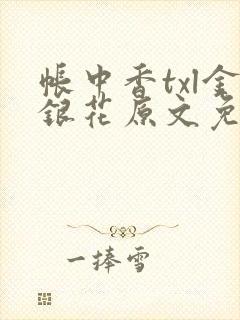 帳中香txl金
銀花原文免
一捧雪